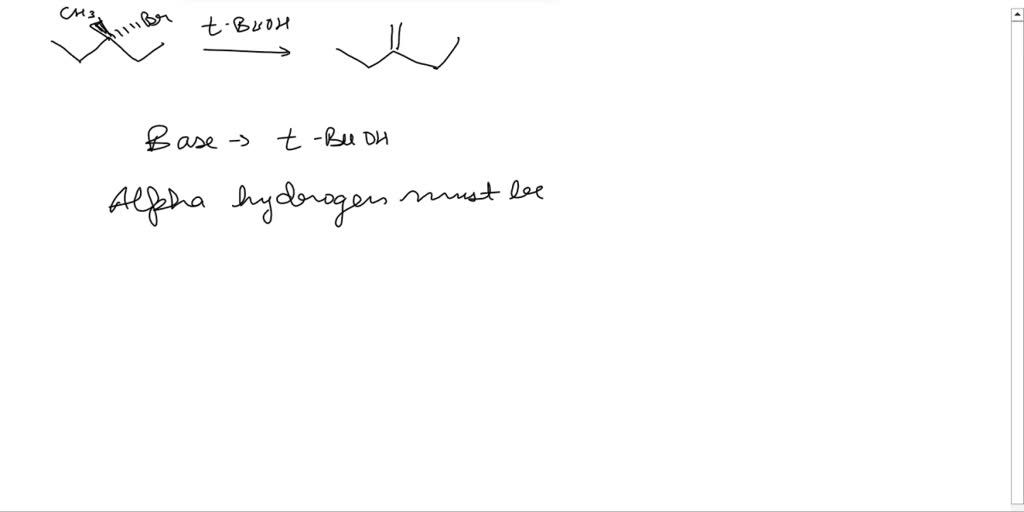 CH3 Br t-BuOH
Base → t-BuOH
Alpha hydrogen must be